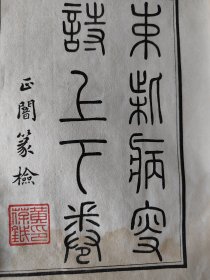 束柴病叟
詩上下卷
正闇篆檢